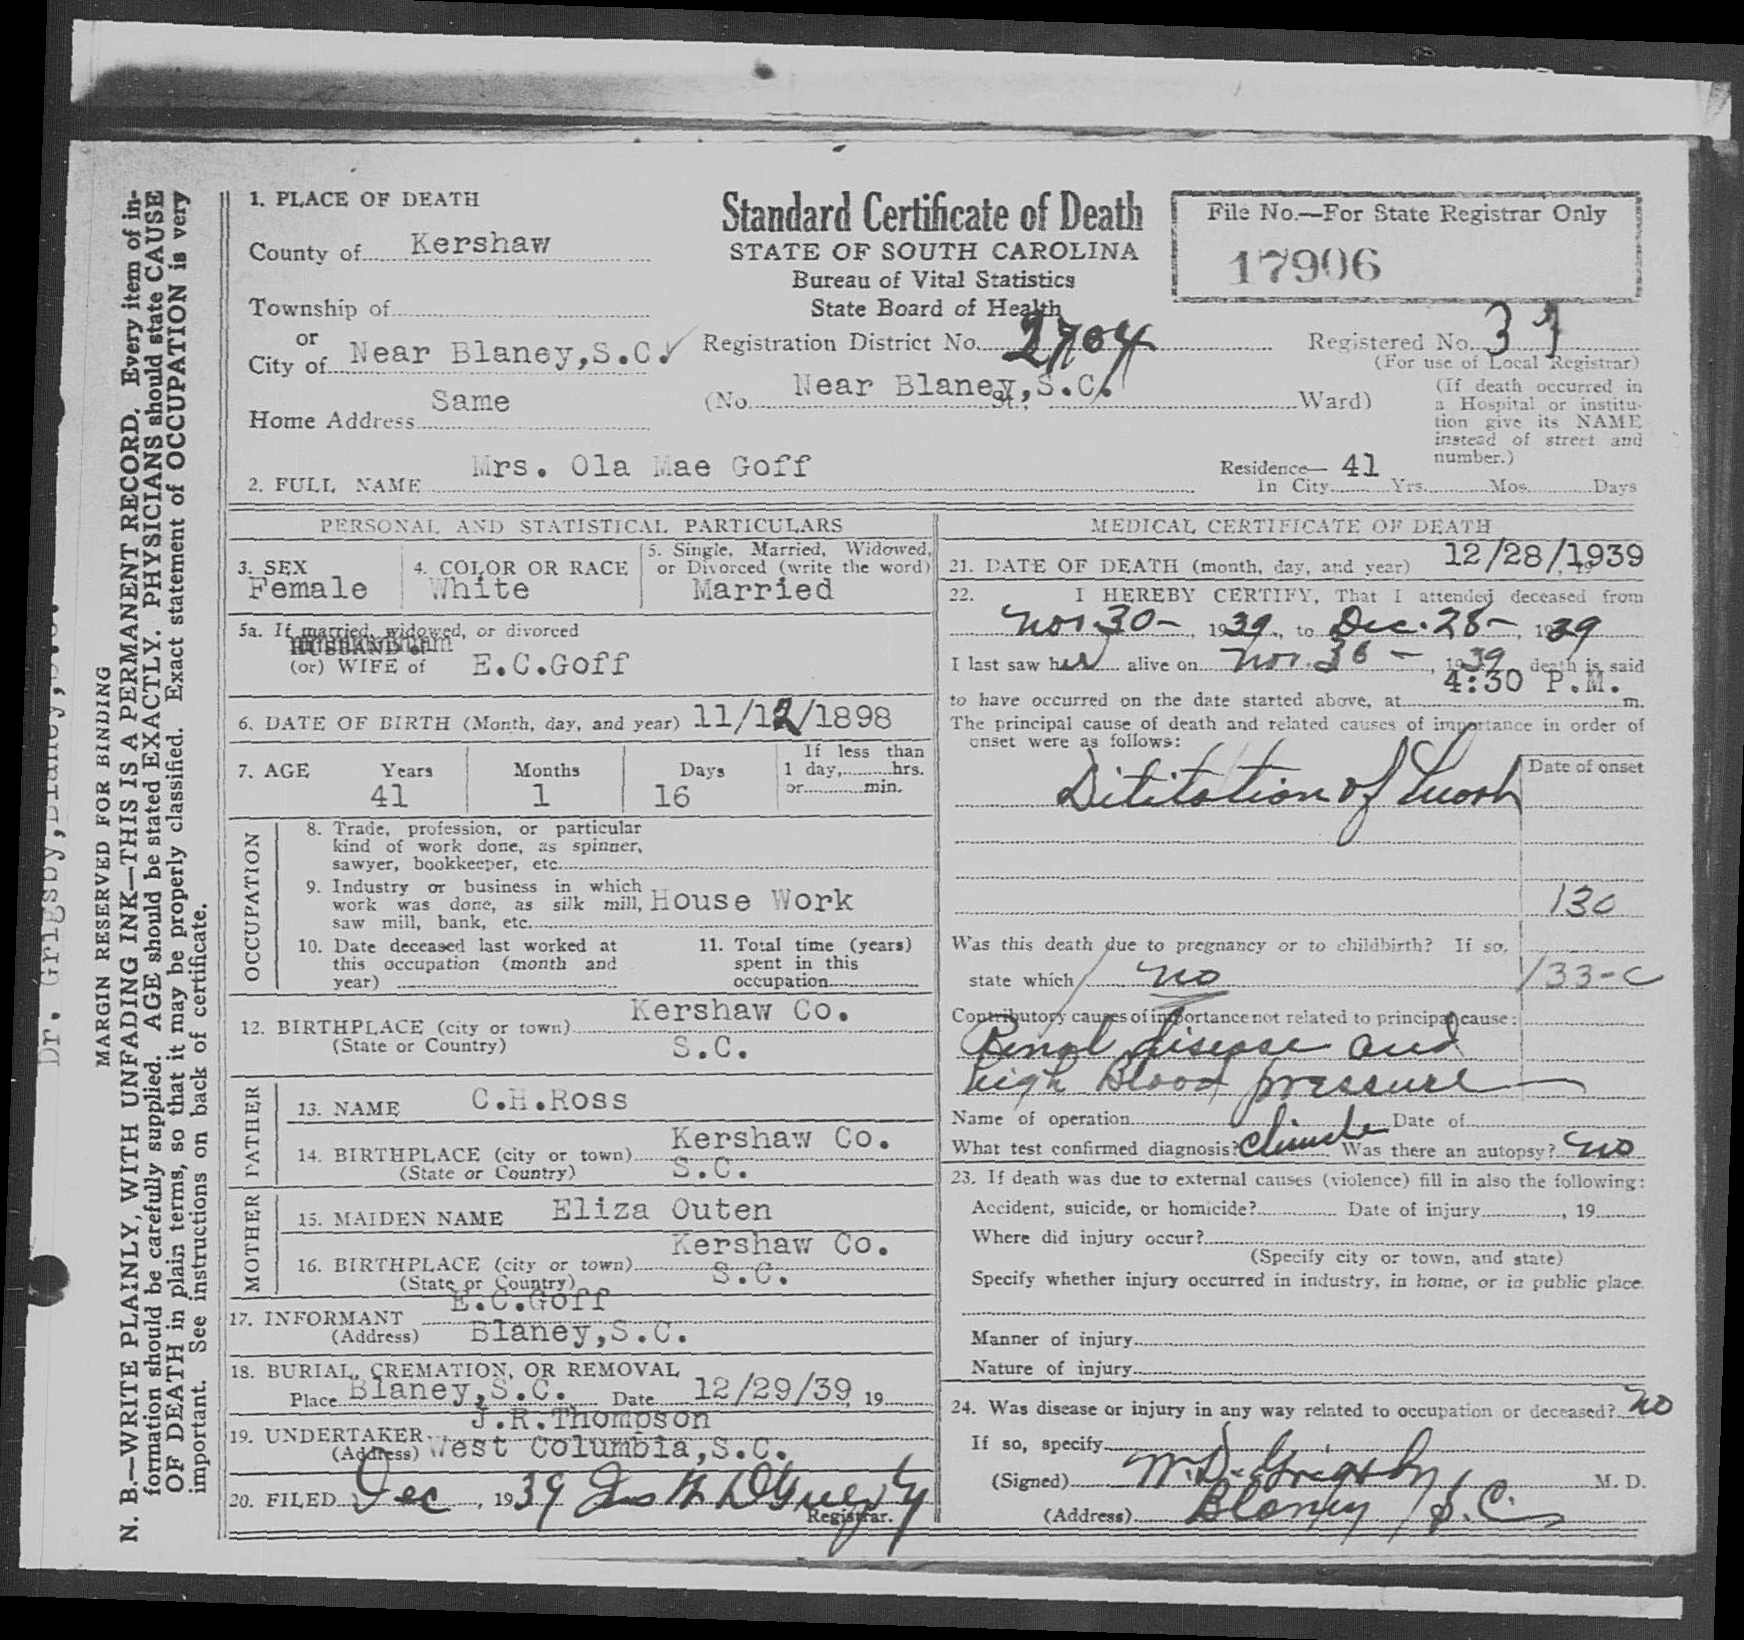 Dr. Grigsby, Blaney, S.C.
MARGIN RESERVED FOR BINDING
N. B.—WRITE PLAINLY, WITH UNFADING INK—THIS IS A PERMANENT RECORD. Every item of in-
formation should be carefully supplied. AGE should be stated EXACTLY. PHYSICIANS should state CAUSE
OF DEATH in plain terms, so that it may be properly classified. Exact statement of OCCUPATION is very
important. See instructions on back of certificate.
1. PLACE OF DEATH
County of Kershaw
Township of
or
City of Near Blaney,S.C.
Home Address Same
Standard Certificate of Death
STATE OF SOUTH CAROLINA
Bureau of Vital Statistics
State Board of Health
Registration District No. 2704
(No. Near Blaney,S.C. St.; Ward)
File No.—For State Registrar Only
17906
Registered No. 37
(For use of Local Registrar)
(If death occurred in
a Hospital or institu-
tion give its NAME
instead of street and
number.)
2. FULL NAME Mrs. Ola Mae Goff
Residence— 41
In City Yrs. Mos. Days
PERSONAL AND STATISTICAL PARTICULARS
3. SEX
Female
4. COLOR OR RACE
White
5. Single, Married, Widowed,
or Divorced (write the word)
Married
5a. If married, widowed, or divorced
HUSBAND of
(or) WIFE of E.C.Goff
6. DATE OF BIRTH (Month, day, and year) 11/12/1898
7. AGE Years Months Days
41 1 16
If less than
1 day, hrs.
or min.
OCCUPATION
8. Trade, profession, or particular
kind of work done, as spinner,
sawyer, bookkeeper, etc.
9. Industry or business in which
work was done, as silk mill, House Work
saw mill, bank, etc.
10. Date deceased last worked at
this occupation (month and
year)
11. Total time (years)
spent in this
occupation
12. BIRTHPLACE (city or town) Kershaw Co.
(State or Country) S.C.
FATHER
13. NAME C.H.Ross
14. BIRTHPLACE (city or town) Kershaw Co.
(State or Country) S.C.
MOTHER
15. MAIDEN NAME Eliza Outen
16. BIRTHPLACE (city or town) Kershaw Co.
(State or Country) S.C.
17. INFORMANT E.C.Goff
(Address) Blaney,S.C.
18. BURIAL, CREMATION, OR REMOVAL
Place Blaney,S.C. Date 12/29/39, 19
19. UNDERTAKER J.R.Thompson
(Address) West Columbia,S.C.
20. FILED Dec, 1939
Registrar.
MEDICAL CERTIFICATE OF DEATH
21. DATE OF DEATH (month, day, and year) 12/28/1939
22. I HEREBY CERTIFY, That I attended deceased from
Nov. 30-, 1939, to Dec. 28-, 1939
I last saw her alive on Nov. 30 -, 1939, death is said
to have occurred on the date started above, at 4:30 P.M. m.
The principal cause of death and related causes of importance in order of
onset were as follows:
Date of onset
of
130
Was this death due to pregnancy or to childbirth? If so,
state which no
133-c
Contributory causes of importance not related to principal cause:
Renal disease and
high Blood pressure
Name of operation Date of
What test confirmed diagnosis? Was there an autopsy? no
23. If death was due to external causes (violence) fill in also the following:
Accident, suicide, or homicide? Date of injury, 19
Where did injury occur?
(Specify city or town, and state)
Specify whether injury occurred in industry, in home, or in public place.
Manner of injury
Nature of injury
24. Was disease or injury in any way related to occupation or deceased? no
If so, specify
(Signed) W.D. Grigsby M. D.
(Address) Blaney S.C.